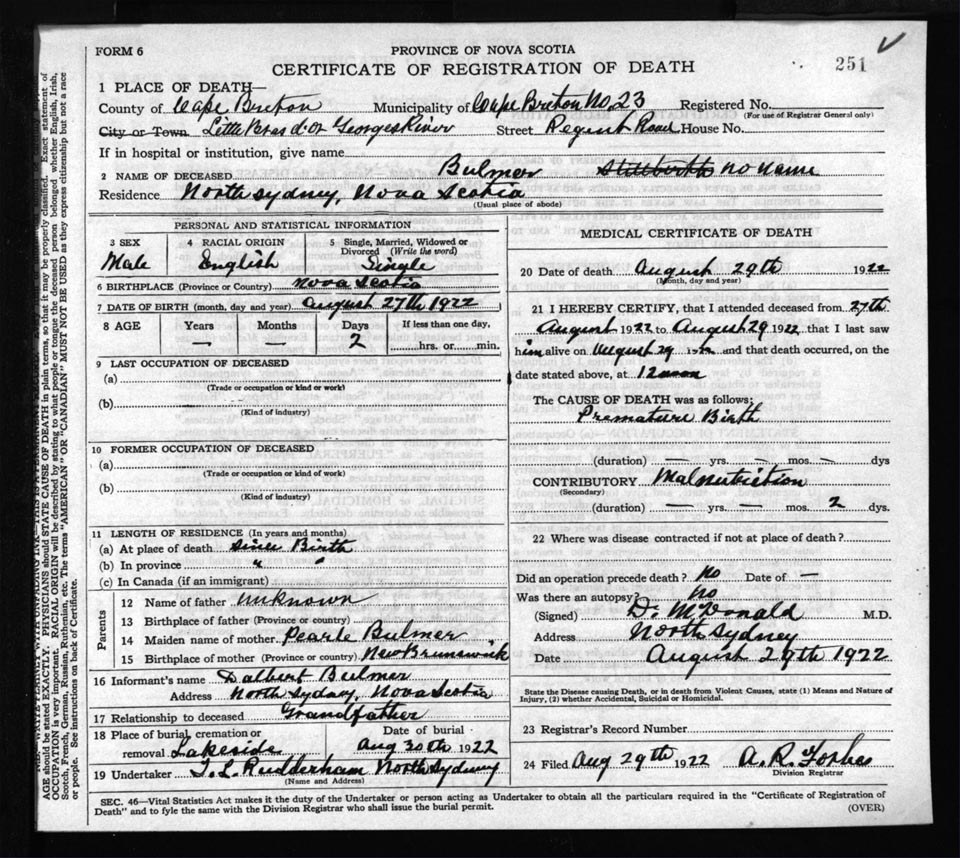 FORM 6
PROVINCE OF NOVA SCOTIA
CERTIFICATE OF REGISTRATION OF DEATH
251
1 PLACE OF DEATH—
County of Cape Breton Municipality of Cape Breton No. 23 Registered No.
(For use of Registrar General only)
City or Town Little Bras d'or Georges River Street Regent Road House No.
If in hospital or institution, give name
2 NAME OF DECEASED Bulmer Stillborth no name
Residence North Sydney, Nova Scotia
(Usual place of abode)
PERSONAL AND STATISTICAL INFORMATION
3 SEX Male
4 RACIAL ORIGIN English
5 Single, Married, Widowed or Divorced (Write the word) Single
6 BIRTHPLACE (Province or Country) Nova Scotia
7 DATE OF BIRTH (month, day and year) August 27th 1922
8 AGE Years Months Days If less than one day,
— — 2 hrs. or min.
9 LAST OCCUPATION OF DECEASED
(a)
(Trade or occupation or kind or work)
(b)
(Kind of industry)
10 FORMER OCCUPATION OF DECEASED
(a)
(Trade or occupation or kind of work)
(b)
(Kind of industry)
11 LENGTH OF RESIDENCE (In years and months)
(a) At place of death since Birth
(b) In province " "
(c) In Canada (if an immigrant)
Parents
12 Name of father unknown
13 Birthplace of father (Province or country)
14 Maiden name of mother Pearle Bulmer
15 Birthplace of mother (Province or country) New Brunswick
16 Informant's name Dalbert Bulmer
Address North Sydney, Nova Scotia
17 Relationship to deceased Grandfather
18 Place of burial, cremation or Date of burial
removal Lakeside Aug 30th 1922
19 Undertaker T. L. Rudderham North Sydney
(Name and Address)
MEDICAL CERTIFICATE OF DEATH
20 Date of death August 29th 1922
(Month, day and year)
21 I HEREBY CERTIFY, that I attended deceased from 27th
August 1922 to August 29 1922 that I last saw
him alive on August 29 1922 and that death occurred, on the
date stated above, at 12 noon
The CAUSE OF DEATH was as follows:
Premature Birth
(duration) — yrs. — mos. — dys
CONTRIBUTORY Malnutrition
(Secondary)
(duration) — yrs. — mos. 2 dys.
22 Where was disease contracted if not at place of death?
Did an operation precede death? No Date of —
Was there an autopsy? No
(Signed) D. McDonald M.D.
Address North Sydney
Date August 29th 1922
State the Disease causing Death, or in death from Violent Causes, state (1) Means and Nature of
Injury, (2) whether Accidental, Suicidal or Homicidal.
23 Registrar's Record Number
24 Filed Aug 29th 1922 A. R. Forbes
Division Registrar
SEC. 46—Vital Statistics Act makes it the duty of the Undertaker or person acting as Undertaker to obtain all the particulars required in the "Certificate of Registration of
Death" and to fyle the same with the Division Registrar who shall issue the burial permit. (OVER)
AGE should be stated EXACTLY. PHYSICIANS should STATE CAUSE OF DEATH in plain terms, so that it may be properly classified. Exact statement of
OCCUPATION is very important. RACIAL ORIGIN will be described by stating to what people or tongue the deceased person belonged whether English, Irish,
Scotch, French, German, Russian, Ruthenian, etc. The terms "AMERICAN" OR "CANADIAN" MUST NOT BE USED as they express citizenship but not a race
or people. See instructions on back of Certificate.